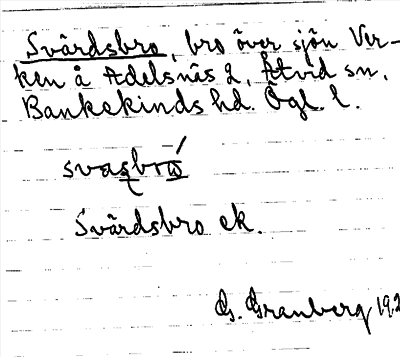 Svärdsbro, bro över sjön Ver-
ken å Adelsnäs g, Åtvid sn,
Bankekinds hd. Ögl. l.
Svärdsbro ek.
G. Granberg 192